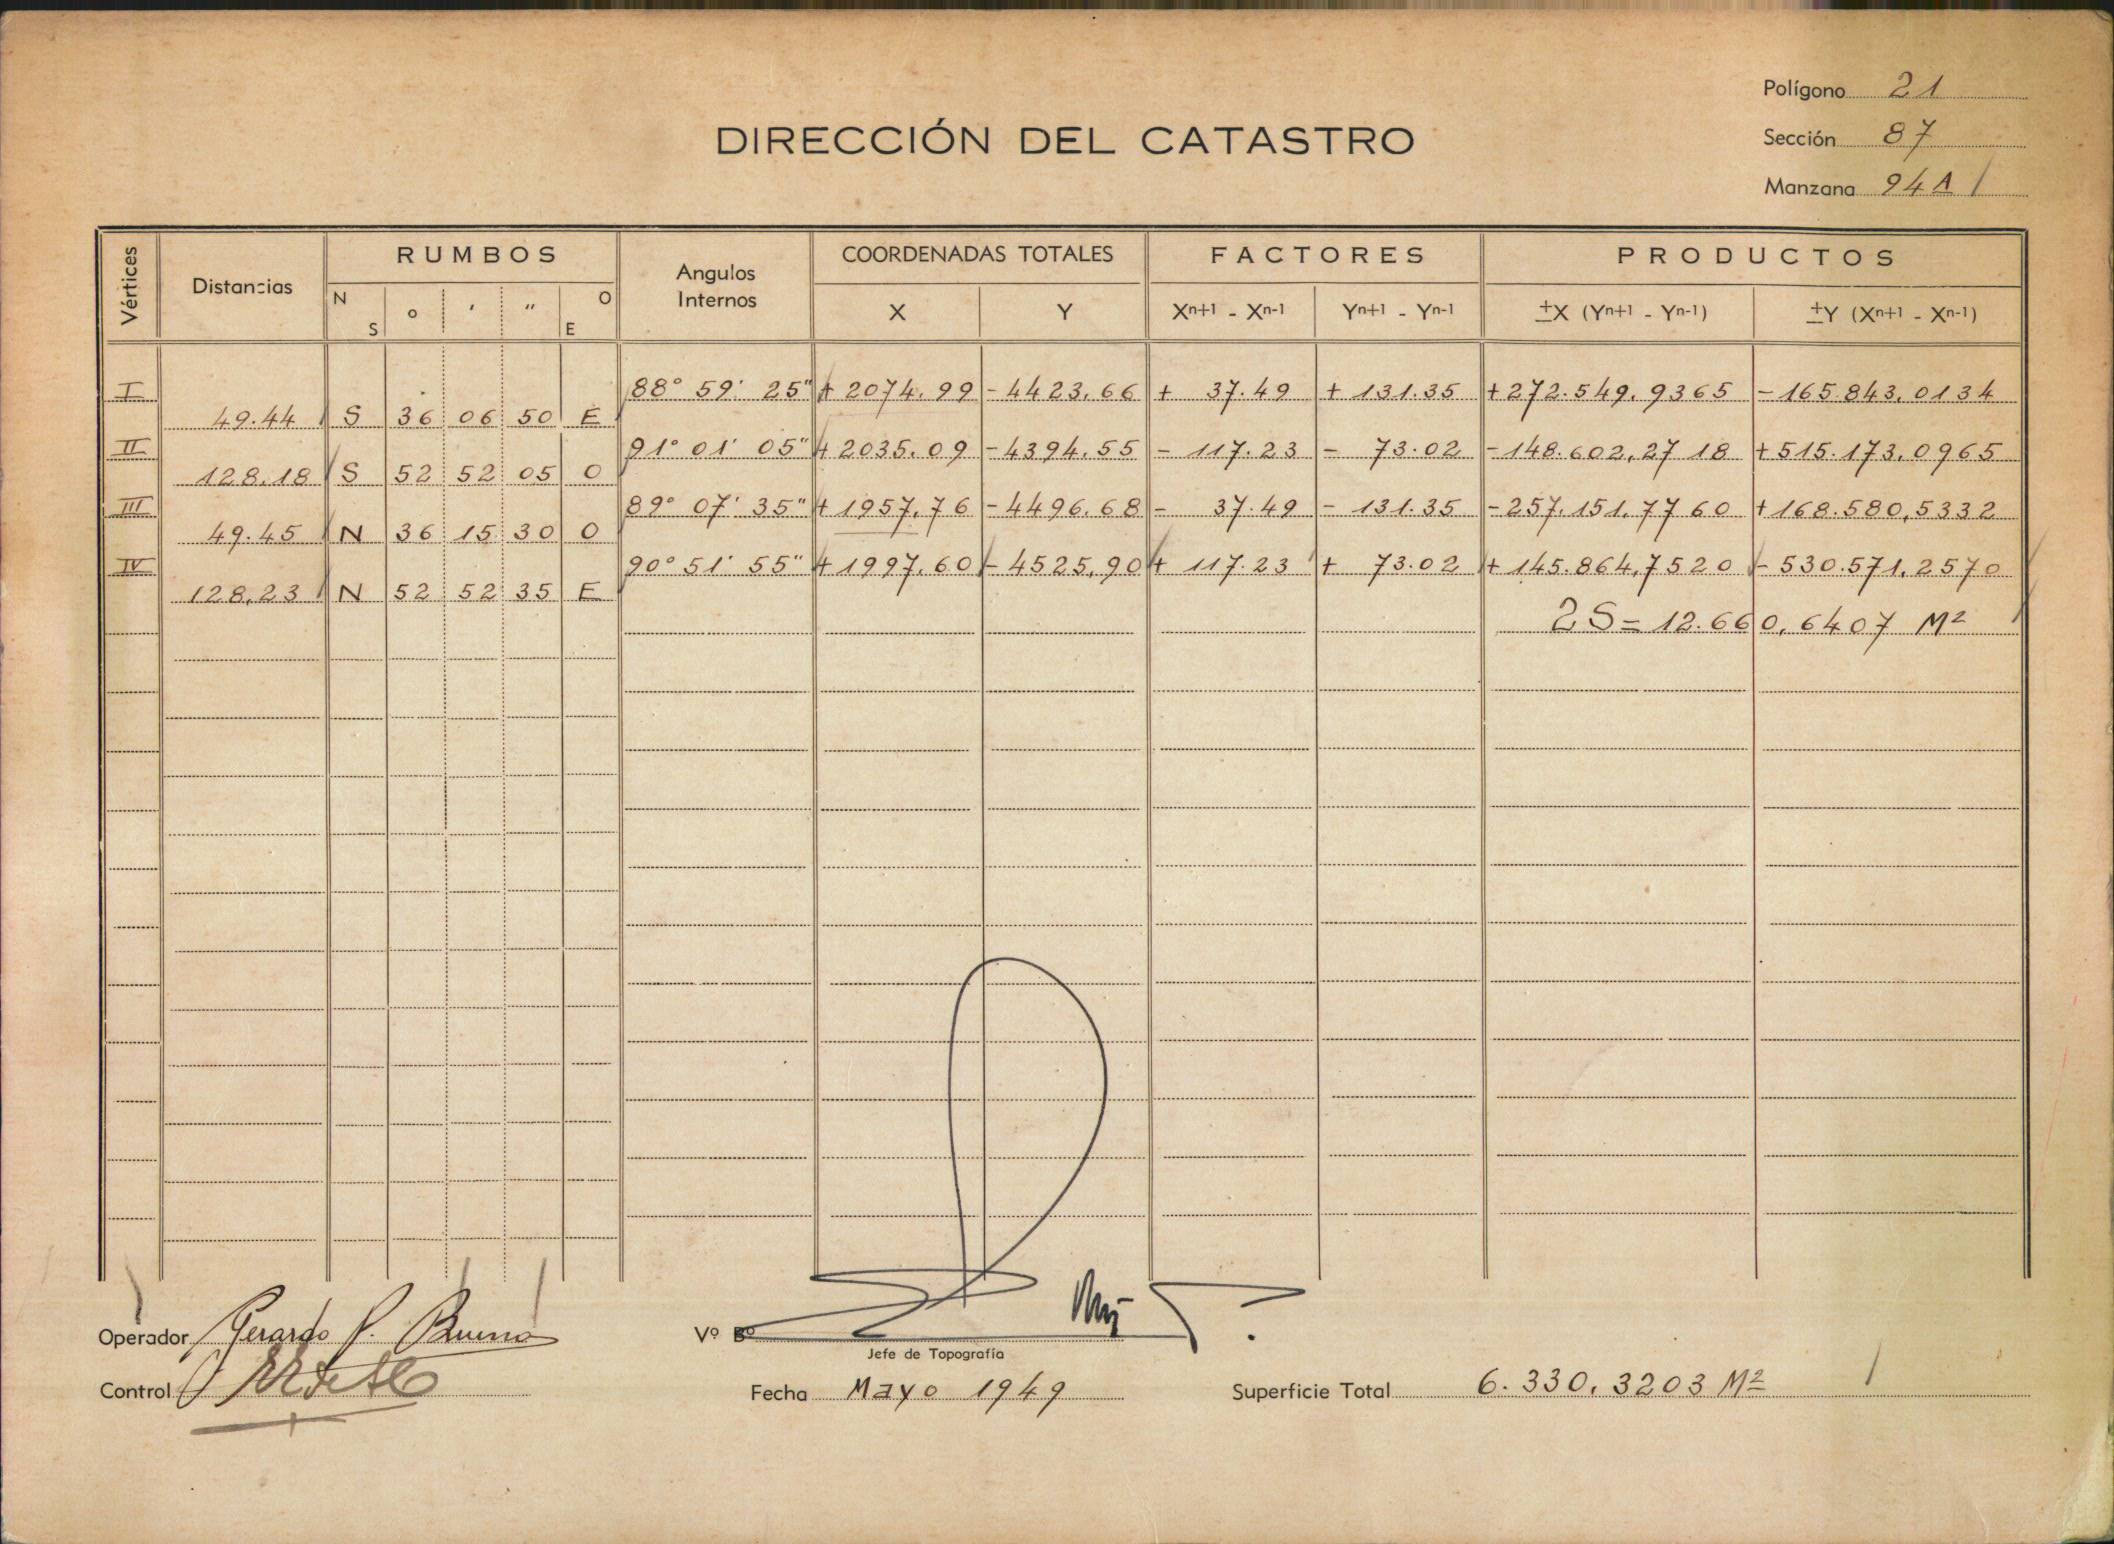 Polígono 21
DIRECCIÓN DEL CATASTRO
Sección 87
Manzana 94A
Vértices Distancias RUMBOS Angulos Internos COORDENADAS TOTALES FACTORES PRODUCTOS
N S ° ' " O E X Y Xn+1 - Xn-1 Yn+1 - Yn-1 ±X (Yn+1 - Yn-1) ±Y (Xn+1 - Xn-1)
I 88° 59' 25" + 2074.99 - 4423.66 + 37.49 + 131.35 + 272.549.9365 - 165.843.0134
49.44 S 36 06 50 E
II 91° 01' 05" + 2035.09 - 4394.55 - 117.23 - 73.02 - 148.602,2718 + 515.173.0965
128.18 S 52 52 05 O
III 89° 07' 35" + 1957.76 - 4496.68 - 37.49 - 131.35 - 257.151.7760 + 168.580,5332
49.45 N 36 15 30 O
IV 90° 51' 55" + 1997.60 - 4525.90 + 117.23 + 73.02 + 145.864,7520 - 530.571.2570
128.23 N 52 52 35 E
2S = 12.660,6407 M²
Operador Gerardo P. Bueno
Vº Bº
Jefe de Topografía
Control
Fecha Mayo 1949
Superficie Total 6.330,3203 M²